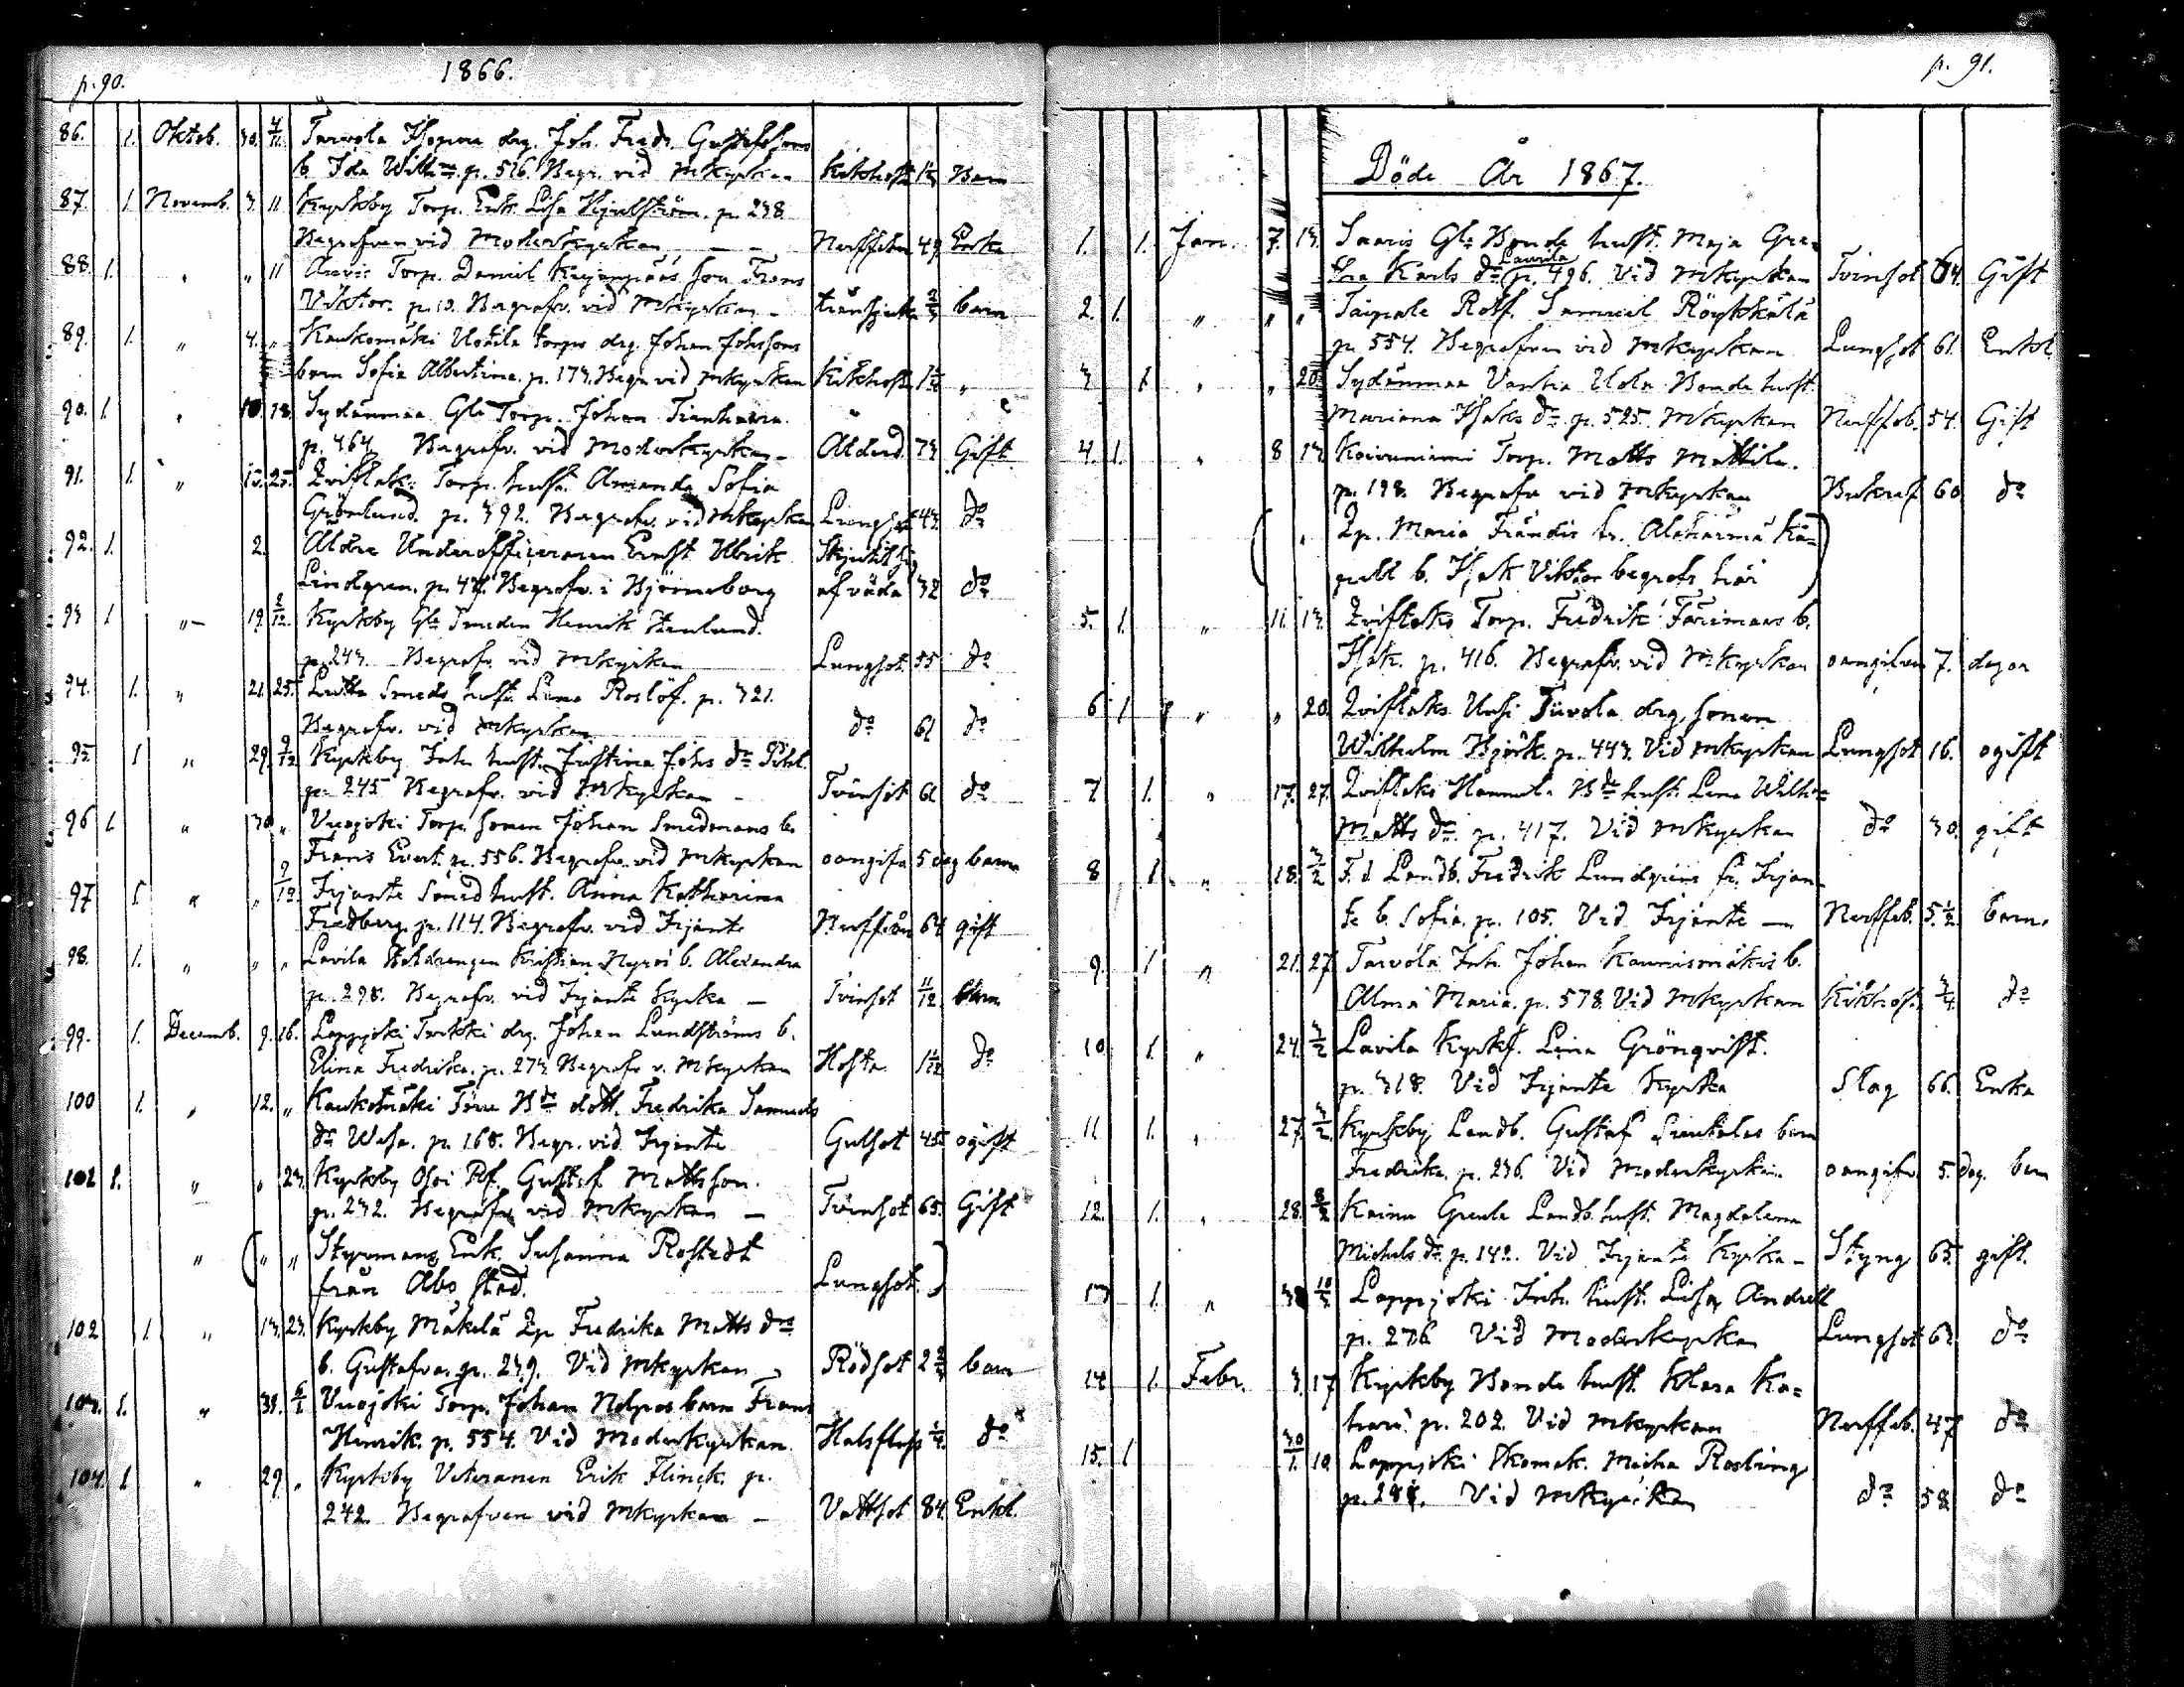 p. 90.
1866.
86. 1. Oktob. 30. 4/11. Tarvola drg. Joh. Fredr. Gustafssons
b. Ida Wilh:na p. 516. Begr. vid Mkyrkan Kikhosta 1 1/2 Barn
87. 1. Novemb. 3. 11 Kyrkby Torp. Enk. Lisa p. 238
Begrafven vid Moderkyrkan Nerffeber 49 Enka
88. 1. " " 11 Torp. Daniel son Frans
Viktor. p. 10. Begrafv. vid Mkyrkan barn
89. 1. " 4. " Kaukomäki Uotila torps drg. Johan Johssons
barn Sofia Albertina. p. 173. Begr. vid Mkyrkan Kikhosta 1 1/2 "
90. 1. " 10. 18. Sydänmaa Gl:a Torp. Johan
p. 464 Begrafv. vid Moderkyrkan Ålderd. 73 Gift
91. 1. " 15. 25. Qviflaks Torp. hust. Amanda Sofia
Grönlund. p. 392. Begrafv. vid Mkyrkan Lungsot 43. d:o
92. 1. 2. Äldre Underofficeraren Ernst Ulrik
Lindgren. p. Begrafv. i Björneborg af våda 32 d:o
93 1 " 19. 2/12. Kyrkby Gl:a Smeden Henrik Stenlund.
p. 243. Begrafv. vid Mkyrkan Lungsot. 55 d:o
94. 1. " 21. 25. Smeds hust. Lena Roslöf. p. 321.
Begrafv. vid Mkyrkan d:o 61 d:o
95 1 " 29. 9/12 Kyrkby Inh. hust. Justina Johs d:r
p. 245 Begrafv. vid Mkyrkan Tvinsot 61 d:o
96 1. " 30 " Vuojoki Torp. sonen Johan Smedmans b.
Frans Evert. p. 556. Begrafv. vid Mkyrkan oangifv. 5 dag barn
97 1. " " 9/12. Irjante Smed hust. Anna Katharina
Fredberg. p. 114. Begrafv. vid Irjante 64 gift
98. 1. " " " Lavila Kristian b. Alexandra
p. 298. Begrafv. vid Irjante kyrka Tvinsot 11/12. barn
99. 1. Decemb. 9. 16. Lappjoki drg. Johan Lundströms b.
Elina Fredrika. p. 273 Begrafv v. Mkyrkan Hosta 1 1/2 d:o
100 1. " 12. " Kaukomäki B:de dott. Fredrika Samuels
d:r p. 168. Begr. vid Irjante Gulsot 45 ogift
102 1. " " 23. Kyrkby Rf. Gustaf Mattsson.
p. 232. Begrafv vid Mkyrkan Tvinsot 65. Gift
" ( " " Styrmans Enk. Susanna Rostedt
från Åbo stad. Lungsot. )
102 1. " 13. 23. Kyrkby Mäkelä Qp Fredrika Matts d:rs
b. Gustafva. p. 239. Vid Mkyrkan Rödsot 2 barn
103. 1. " 31. 6/1. Vuojoki Torp. Johan barn Frans
Henrik. p. 554. Vid Moderkyrkan d:o
104. 1. " 29. " Kyrkby Veteranen Erik Flinck. p.
242. Begrafven vid Mkyrkan Vattsot 84. Enkl.
p. 91.
Döde År 1867.
1. 1. Jan. 7. 13. Saaris Gl:a Bonde hust. Maja Gre=
Lavila
ta Karls d:r p. 496. Vid Mkyrkan Tvinsot 64. Gift
2. 1. " " " Taipale Rotf. Samuel
p. 554. Begrafven vid Mkyrkan Lungsot 61. Enkl
3 1. " " 20. Sydänmaa Bonde hust.
Mariana Isaks d:r p. 525. Mkyrkan Nerffeb. 54. Gift
4. 1. " 8 13 Koivuniemi Torp. Matts Mattila.
p. 198. Begrafv vid Mkyrkan 60 d:o
( " Qp. Maria fr. Alahärmä Ka=
pell b. Isak Viktor begrafs här )
5. 1. " 11. 13. Qviflaks Torp. Fredrik b.
Isak. p. 416. Begrafv. vid Mkyrkan oangifven 7. dagar
6 1 " " 20. Qviflaks drg. sonen
Wilhelm Björk. p. 443. Vid Mkyrkan Lungsot 16. ogift
7 1. " 17. 27. Qviflaks B:de hust. Lena Wilh:a
Matts d:r p. 417. Vid Mkyrkan d:o 30. gift
8 1. " 18. 3/2 F. d. Landb. Fredrik Lundgrens fr. Irjan-
te b. Sofia. p. 105. Vid Irjante Nerffeb. 5 1/2. barn.
9. 1. " 21. 27 Tarvola Inh. Johan b.
Alma Maria. p. 578 Vid Mkyrkan Kikhost. 3/4. d:o
10 1. " 24 3/2 Lavila Lena Grönqvist.
p. 318. Vid Irjante Kyrka Slag 66. Enka
11 1. " 27. 3/2. Kyrkby Landb. Gustaf barn
Fredrika. p. 236. Vid Moderkyrkan. oangifv. 5. dag. barn
12. 1. " 28. 3/2 Kaino Landb. hust. Magdalena
Michels d:r p. 142. Vid Irjante Kyrka Styng 65. gift.
13 1. " 10/2. Lappjoki Inh. hust. Lisa
p. 276 Vid Moderkyrkan Lungsot d:o
14 1. Febr. 3. 17 Kyrkby Bonde hust. Klara Ka=
p. 202. Vid Mkyrkan Nerffeb. 47 d:o
15. 1 30/1. 10. Lappjoki Skomak.
Vid Mkyrkan d:o 58 d:o